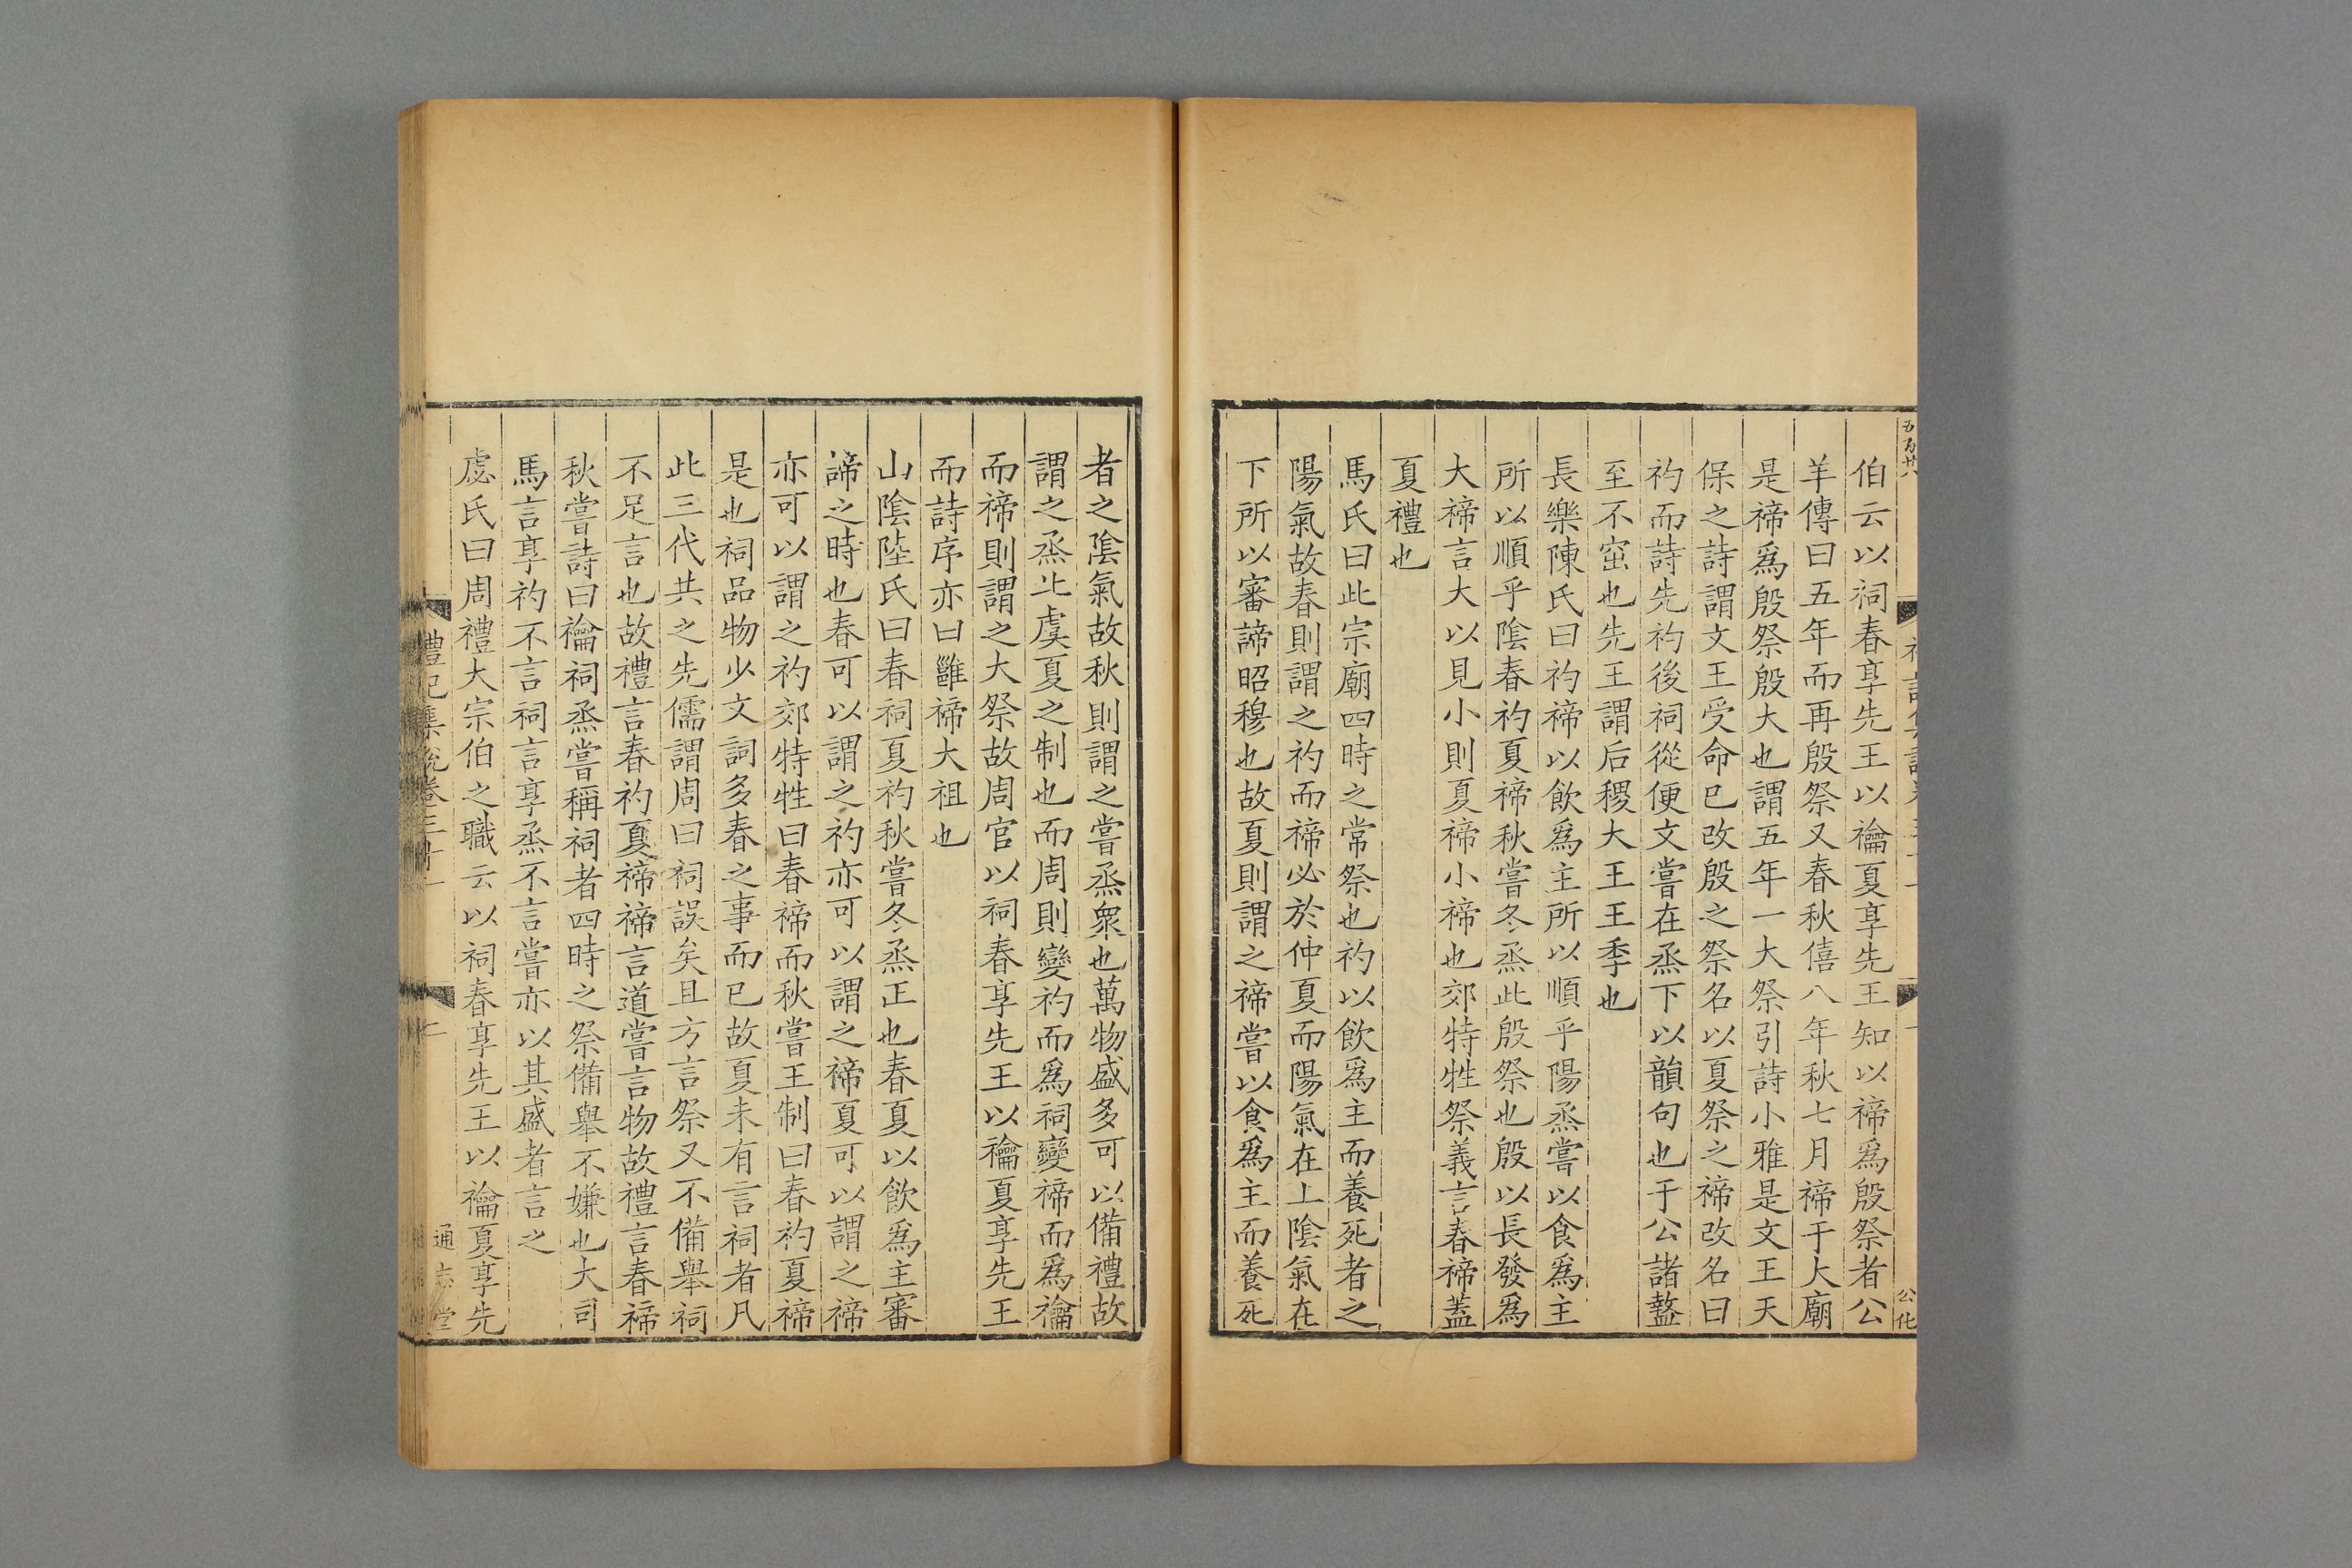 伯云以祠春享先王以禴夏享先王知以禘爲殷祭者公
羊傳曰五年而再殷祭又春秋僖八年秋七月禘于大廟
是禘爲殷祭殷大也謂五年一大祭引詩小雅是文王天
保之詩謂文王受命已改殷之祭名以夏祭之禘改名曰
礿而詩先礿後祠從便文嘗在烝下以韻句也于公諸盩
至不窋也先王謂后稷大王王季也
長樂陳氏曰礿禘以飲爲主所以順乎陽烝嘗以食爲主
所以順乎陰春礿夏禘秋嘗冬烝此殷祭也殷以長發爲
大禘言大以見小則夏禘小禘也郊特牲祭義言春禘蓋
夏禮也
馬氏曰此宗廟四時之常祭也礿以飲爲主而養死者之
陽氣故春則謂之礿而禘必於仲夏而陽氣在上陰氣在
下所以審諦昭穆也故夏則謂之禘嘗以食爲主而養死
者之陰氣故秋則謂之嘗烝衆也萬物盛多可以備禮故
謂之烝此虞夏之制也而周則變礿而爲祠變禘而爲禴
而禘則謂之大祭故周官以祠春享先王以禴夏享先王
而詩序亦曰雝禘大祖也
山陰陸氏曰春祠夏礿秋嘗冬烝正也春夏以飲爲主審
諦之時也春可以謂之礿亦可以謂之禘夏可以謂之禘
亦可以謂之礿郊特牲曰春禘而秋嘗王制曰春礿夏禘
是也祠品物少文詞多春之事而已故夏未有言祠者凡
此三代共之先儒謂周曰祠誤矣且方言祭又不備舉祠
不足言也故禮言春礿夏禘禘言道嘗言物故禮言春禘
秋嘗詩曰禴祠烝嘗稱祠者四時之祭備舉不嫌也大司
馬言享礿不言祠言享烝不言嘗亦以其盛者言之
虙氏曰周禮大宗伯之職云以祠春享先王以禴夏享先
禮記集說卷三十一
二
通志堂